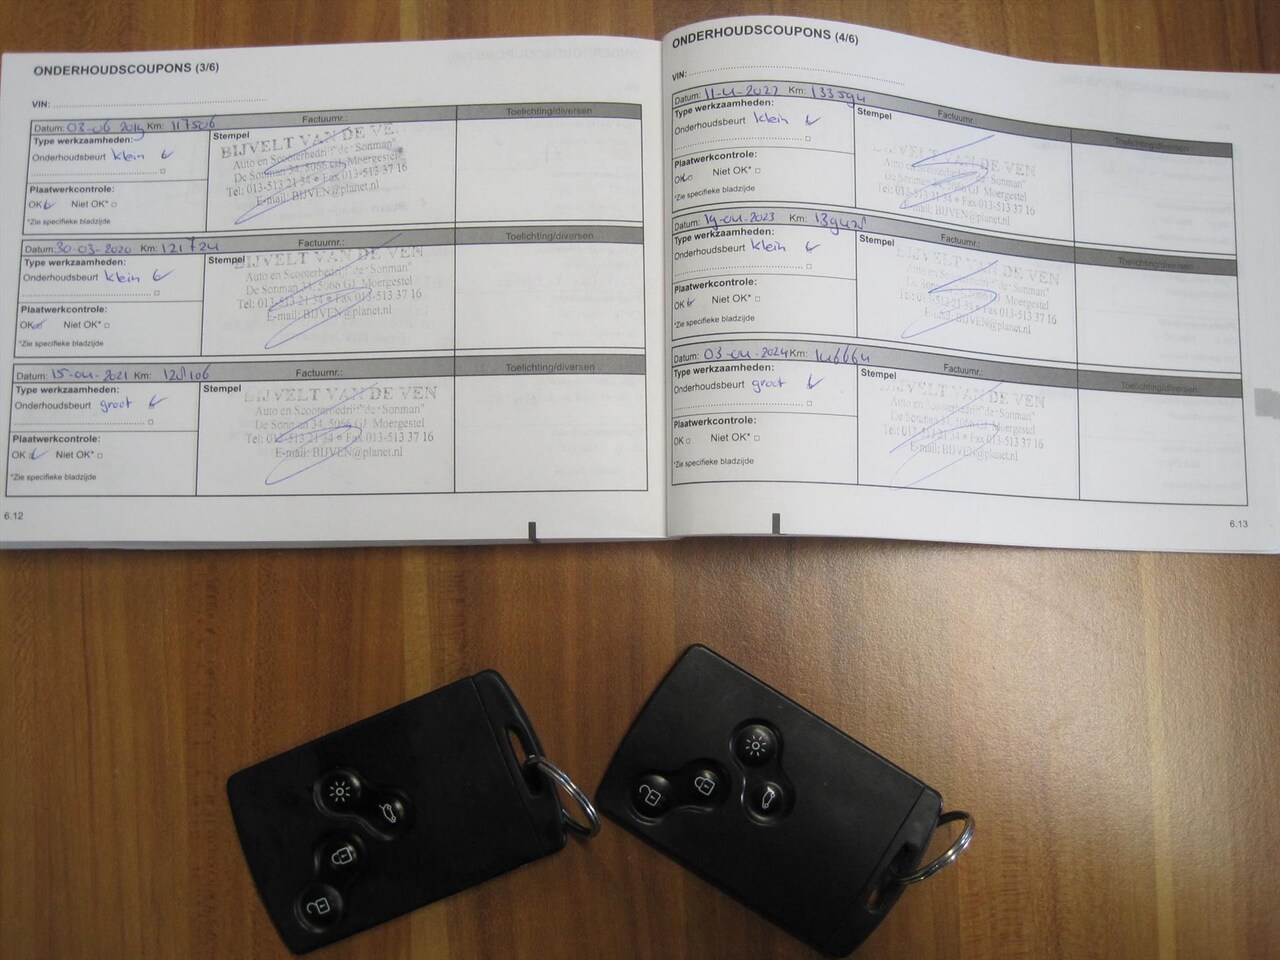 ONDERHOUDSCOUPONS (3/6)
VIN:
Datum: 03-06 2019 Km: 117506 Factuurnr.: Toelichting/diversen
Type werkzaamheden:
Onderhoudsbeurt klein
Plaatwerkcontrole:
OK Niet OK*
*Zie specifieke bladzijde
Stempel
BIJVELT VAN DE VE
Auto en Scooterbedrijf "de Sonman"
De Sonman 34, 5066 GJ Moergestel
Tel: 013-513 21 34 • Fax 013-513 37 16
E-mail: BIJVEN@planet.nl
Datum: 30-03-2020 Km: 121724 Factuurnr.: Toelichting/diversen
Type werkzaamheden:
Onderhoudsbeurt klein
Plaatwerkcontrole:
OK Niet OK*
*Zie specifieke bladzijde
Stempel
BIJVELT VAN DE VEN
Auto en Scooterbedrijf "de Sonman"
De Sonman 34, 5066 GJ Moergestel
Tel: 013-513 21 34 • Fax 013-513 37 16
E-mail: BIJVEN@planet.nl
Datum: 15-04-2021 Km: 128106 Factuurnr.: Toelichting/diversen
Type werkzaamheden:
Onderhoudsbeurt groot
Plaatwerkcontrole:
OK Niet OK*
*Zie specifieke bladzijde
Stempel
BIJVELT VAN DE VEN
Auto en Scooterbedrijf "de Sonman"
De Sonman 34, 5066 GJ Moergestel
Tel: 013-513 21 34 • Fax 013-513 37 16
E-mail: BIJVEN@planet.nl
6.12
ONDERHOUDSCOUPONS (4/6)
VIN:
Datum: 11-4-2022 Km: 133594 Factuurnr.: Toelichting/diversen
Type werkzaamheden:
Onderhoudsbeurt klein
Plaatwerkcontrole:
OK Niet OK*
*Zie specifieke bladzijde
Stempel
VAN DE VEN
Auto en Scooterbedrijf "de Sonman"
De Sonman 34, 5066 GJ Moergestel
Tel: 013-513 21 34 • Fax 013-513 37 16
E-mail: BIJVEN@planet.nl
Datum: 19-04-2023 Km: Factuurnr.: Toelichting/diversen
Type werkzaamheden:
Onderhoudsbeurt klein
Plaatwerkcontrole:
OK Niet OK*
*Zie specifieke bladzijde
Stempel
BIJVELT VAN DE VEN
Auto en Scooterbedrijf "de Sonman"
De Sonman 34, 5066 GJ Moergestel
Tel: 013-513 21 34 • Fax 013-513 37 16
E-mail: BIJVEN@planet.nl
Datum: 03-04-2024 Km: 146664 Factuurnr.: Toelichting/diversen
Type werkzaamheden:
Onderhoudsbeurt groot
Plaatwerkcontrole:
OK Niet OK*
*Zie specifieke bladzijde
Stempel
BIJVELT VAN DE VEN
Auto en Scooterbedrijf "de Sonman"
De Sonman 34, 5066 GJ Moergestel
Tel: 013-513 21 34 • Fax 013-513 37 16
E-mail: BIJVEN@planet.nl
6.13